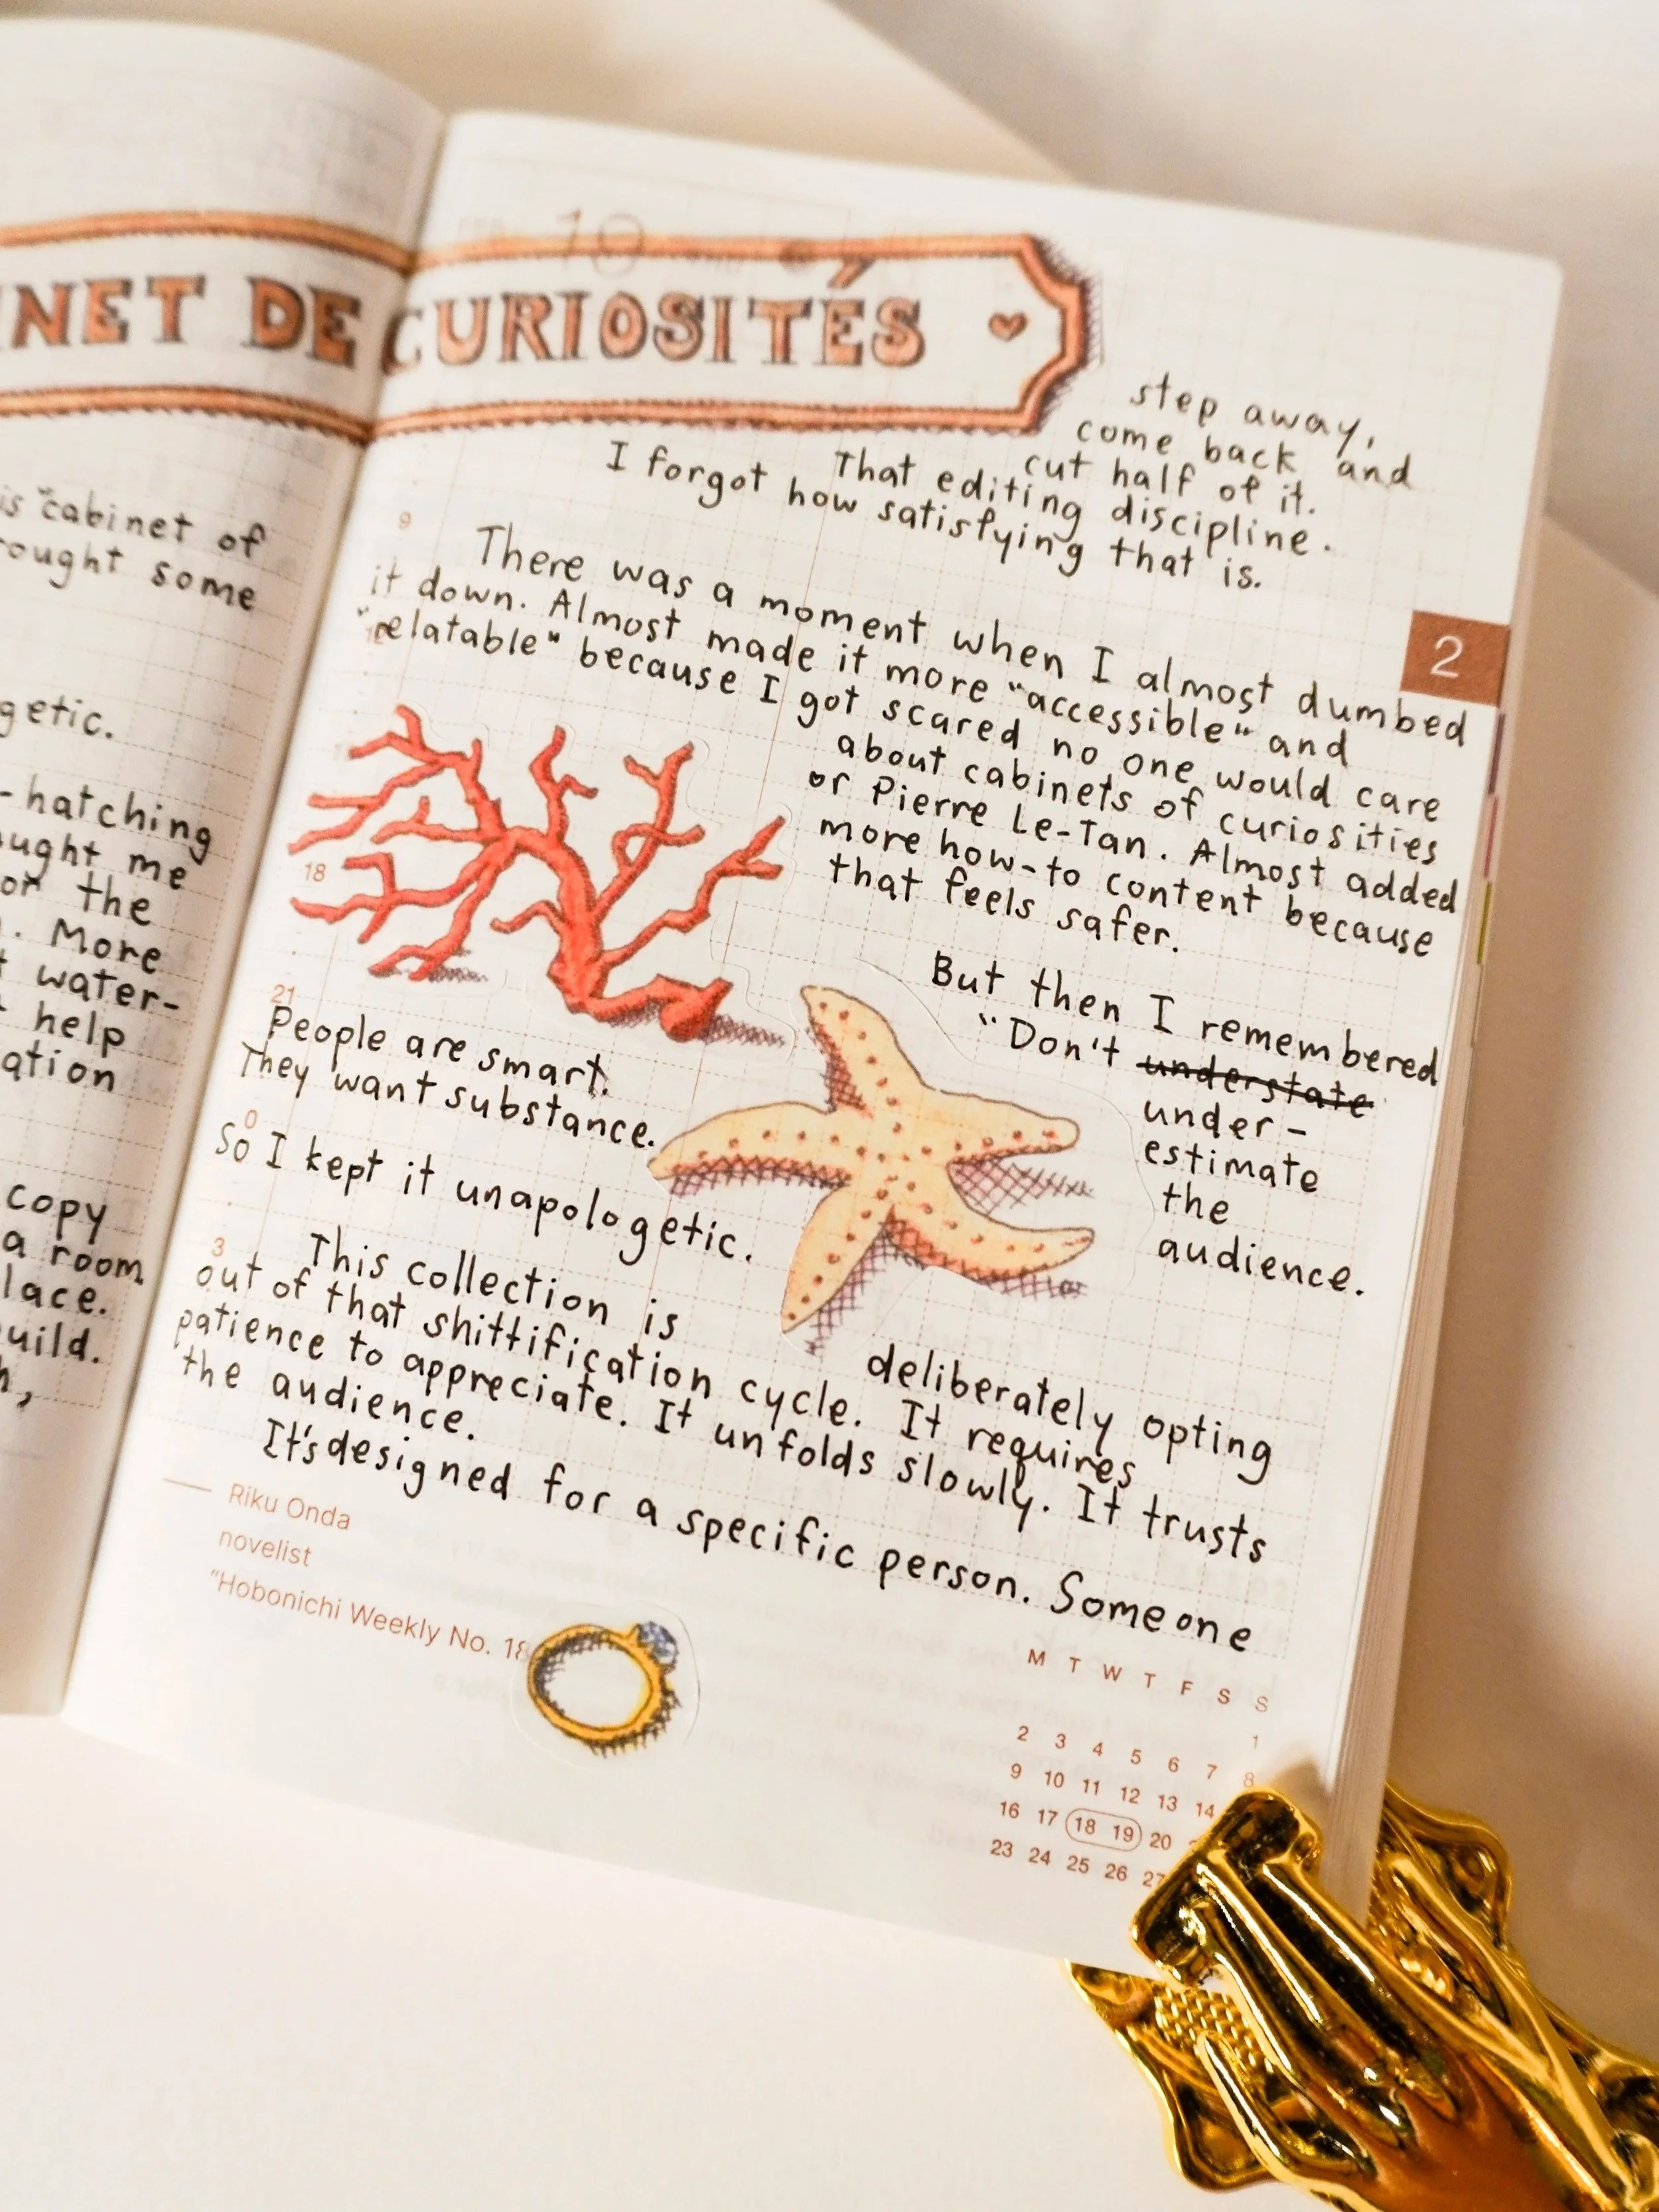 NET DE CURIOSITÉS
is "cabinet of
rought some
getic.
-hatching
ught me
or the
. More
t water-
help
ation
copy
a room
lace.
uild.
10
step away,
come back and
cut half of it.
That editing discipline.
I forgot how satisfying that is.
9
There was a moment when I almost dumbed
it down. Almost made it more "accessible" and
"relatable" because I got scared no one would care
about cabinets of curiosities
or Pierre Le-Tan. Almost added
more how-to content because
that feels safer.
2
18
But then I remembered
"Don't understate
under-
estimate
the
audience.
21
People are smart.
They want substance.
0
So I kept it unapologetic.
3
This collection is deliberately opting
out of that shittification cycle. It requires
patience to appreciate. It unfolds slowly. It trusts
the audience.
It's designed for a specific person. Someone
Riku Onda
novelist
"Hobonichi Weekly No. 18
M T W T F S S
1
2 3 4 5 6 7 8
9 10 11 12 13 14
16 17 18 19 20
23 24 25 26 27